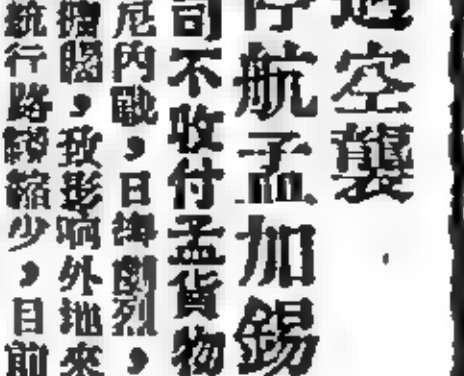 過空襲
停航孟加錫
司不收付孟貨物
尼內戰，日緝劇烈，
擴闊，致影响外地來
航行路線縮少，目前